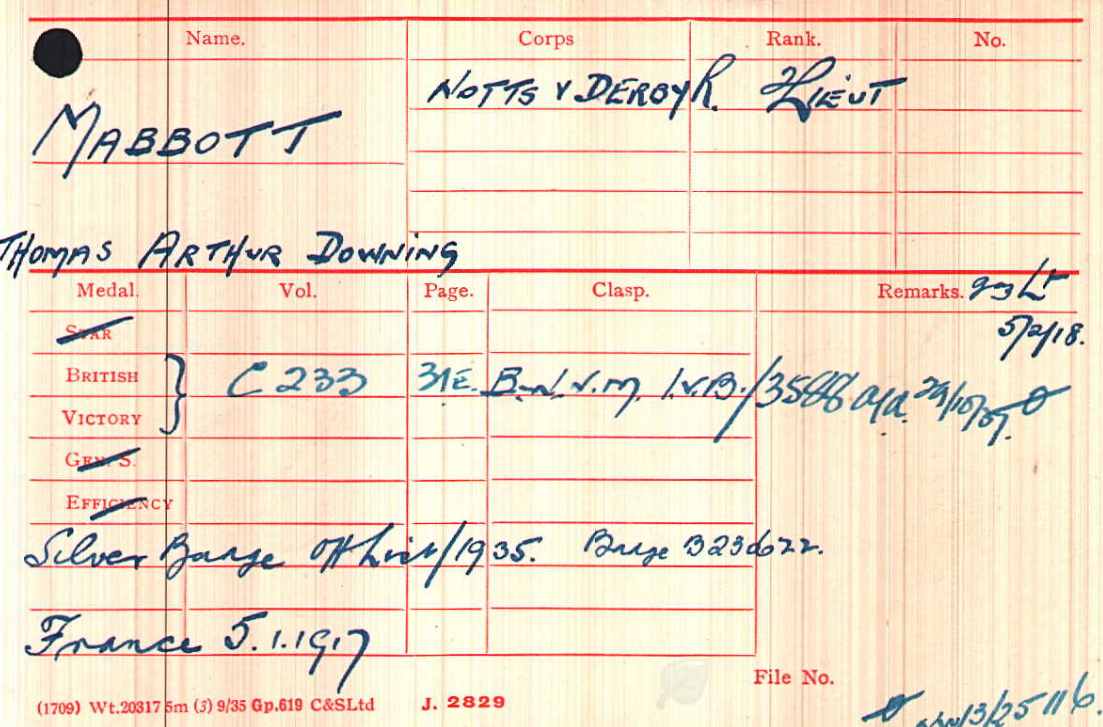 Name. Corps Rank. No.
MABBOTT NOTTS & DERBY R. LIEUT
THOMAS ARTHUR DOWNING
Medal. Vol. Page. Clasp. Remarks.
5/2/18.
STAR
BRITISH C 233 31E. B.W.V.M. I.V.B./3588
VICTORY
GEN. S.
EFFICIENCY
Silver Badge Off List/1935. Badge B236622.
France 5.1.1917
File No.
(1709) Wt.20317 5m (3) 9/35 Gp.619 C&SLtd J. 2829